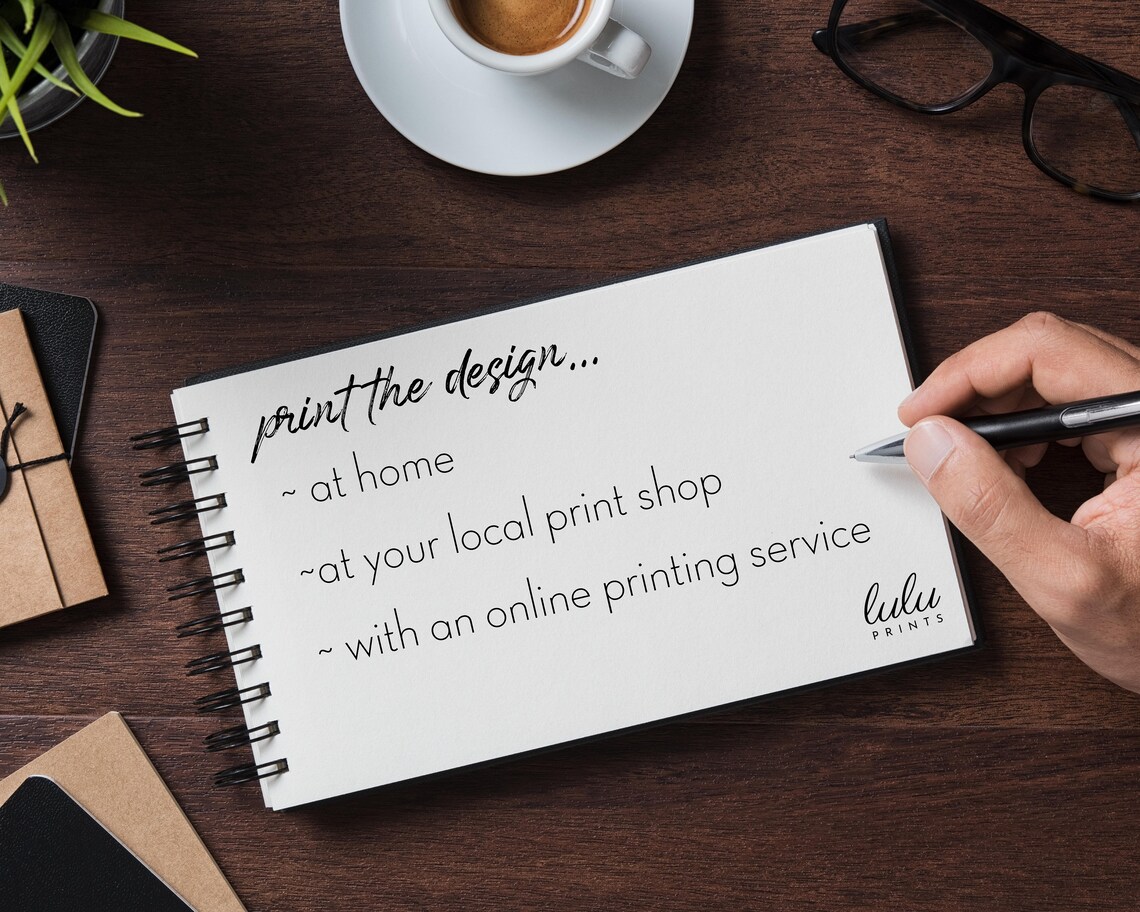 print the design...
~ at home
~at your local print shop
~ with an online printing service
lulu
PRINTS